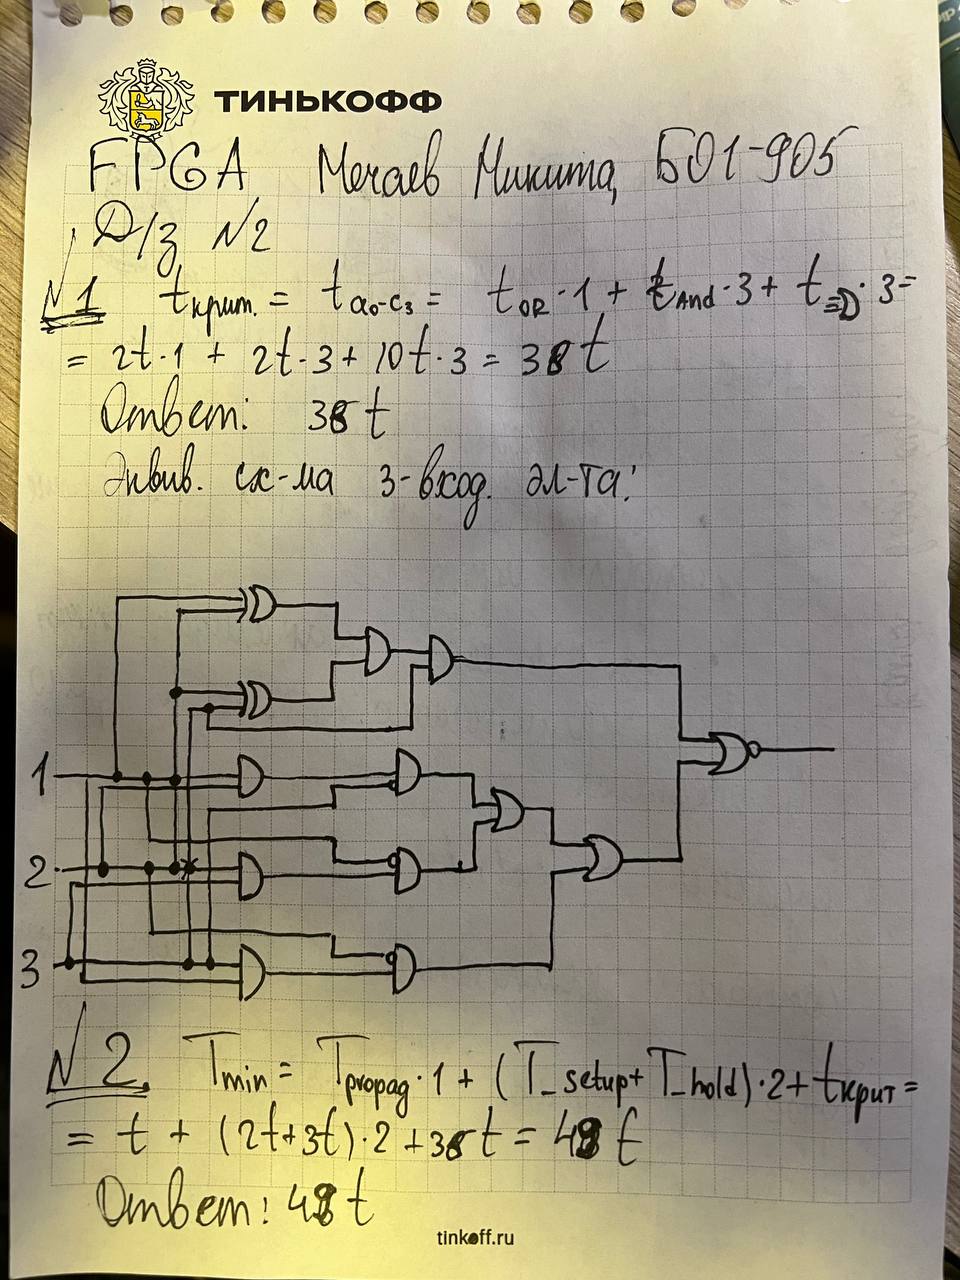 ТИНЬКОФФ
FPGA Мечаев Никита, Б01-905
Д/з №2
№1 tкрит. = ta₀-c₃ = tOR·1 + tAnd·3 + t=D·3=
= 2t·1 + 2t·3 + 10t·3 = 38t
Ответ: 38t
Эквив. сх-ма 3-вход. эл-та:
1
2
3
№2. Tmin = Tpropag·1 + (T_setup+T_hold)·2+tкрит =
= t + (2t+3t)·2+38t = 49t
Ответ: 49t
tinkoff.ru